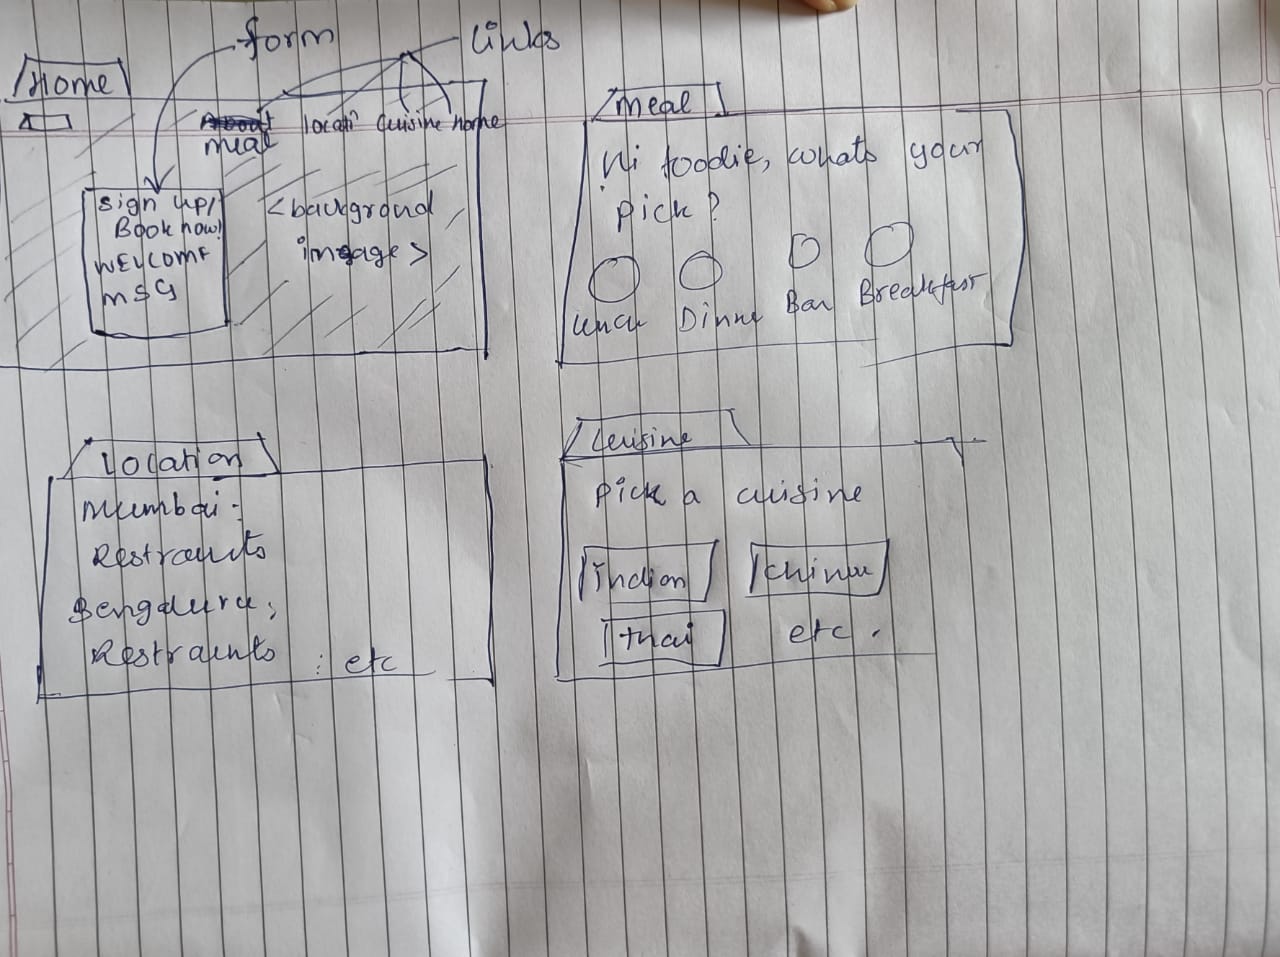 form
links
Home
meal
locati cuisine home
sign up/
Book now!
WELCOME
MSG
<background
image>
meal
Hi foodie, whats your
pick?
lunch Dinne Bar Breakfast
Location
Mumbai:
Restraunts
Bengaluru:
Restraunts : etc
Cuisine
pick a cuisine
indian
thai
etc.